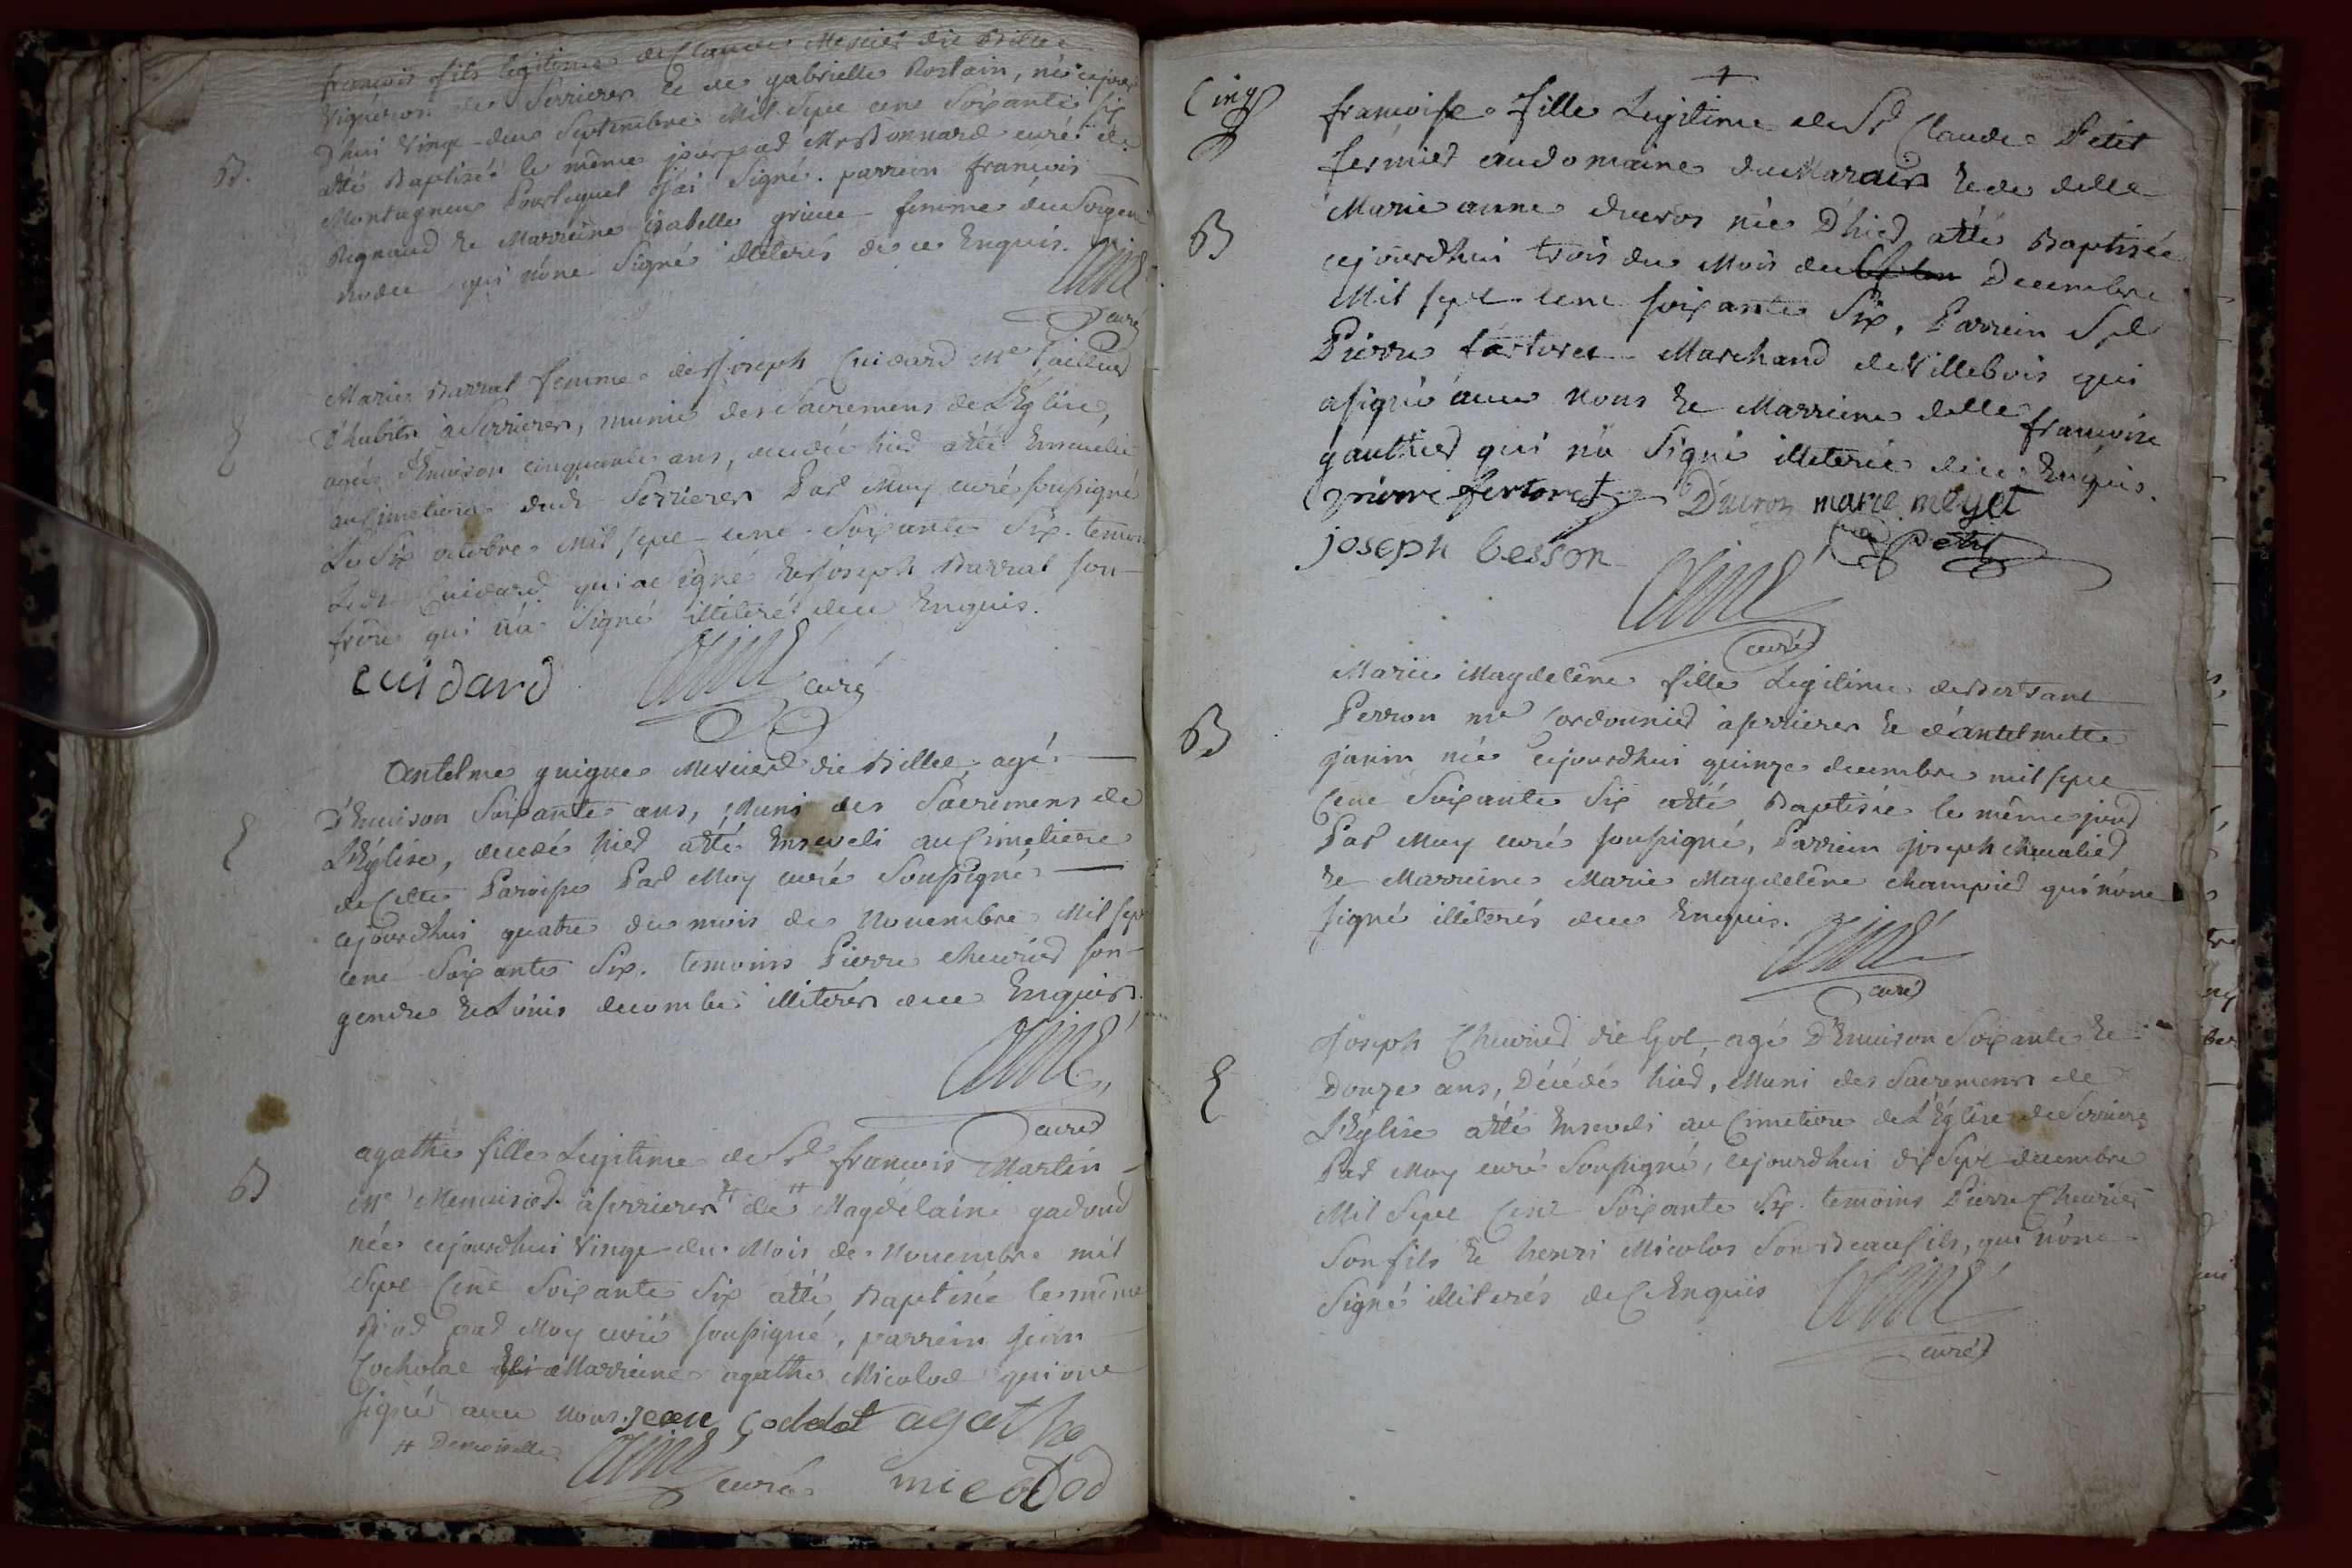 françois fils legitime de Claude Mercier dit Billet
vigneron de Serrieres et de gabrielle Rostain, né cejour
d'hui vingt-deux Septembre Mil Sept cent Soixante six
B.
atté Baptisé le même jour par Mr Bonnard curé de
Montagneu Pour lequel j'ai signé. parrein françois
Regnaud et Marreine isabelle femme du
qui n'ont Signé illiterés de ce Enquis.
Aimé curé
Marie Barrat femme de Joseph Cuidard Me Tailleur
d'habits à Serrieres, munie des Sacremens de L'Eglise,
E
agée d'Enuison cinquante ans, decedée hier atté Enseuelie
au Cimetiere dudt Serrieres Par Moy curé soussigné
Le Six octobre Mil sept cent Soixante Six. temoins
Ledt Cuidard qui a signé et Joseph Barrat son
frere qui n'a Signé illiteré de ce Enquis.
cuidard Aimé curé
Antelme guigue Mercier dit Billet, agé
D'Enuison Soixante ans, Muni des Sacremens de
E
L'Eglise, decedé hier atté Enseveli au Cimetiere
de Cette Paroisse Par Moy curé Soussigné
cejourdhui quatre du mois de Nouembre Mil sept
cent Soixante Six. temoins Pierre cheurier son
gendre et Louis decombe illiterés de ce Enquis.
Aimé
curé
agathe fille Legitime de Sr françois Martin
B
Me Menuisier à serrieres et de # Magdelaine gadoud
née cejourdhui vingt du Mois de Nouembre mil
Sept Cent Soixante Six atté Baptisée le même
par Moy curé soussigné, parrein jean
Cochotat Marreine agathe Micolod qui ont
signé auec nous. jean agathe
# Demoiselle
Aimé curé micolod
Cinq
françoise fille Legitime de Sr Claude Petit
fermier au domaine du Marais et de delle
Marie anne ducros née D'hier atté Baptisée
B
cejourdhui trois du Mois de Decembre
Mil sept cent soixante Six, Parrein Sr
Pierre fertoret Marchand de Villebois qui
a signé auec Nous et Marreine delle françoise
gauthier qui n'a Signé illiterée de ce Enquis.
pierre fertoret Ducros marie meyet
joseph besson petit
Aimé
curé
Marie Magdelêne fille Legitime de Bertrand
Perron me Cordonnier à serrieres et d'antelmette
B
janin née cejourdhui quinze decembre mil sept
Cent Soixante Six atté Baptisée le même jour
Par Moy curé soussigné, Parrein joseph cheualier
et Marreine Marie Magdelêne champier qui n'ont
signé illiterés de ce Enquis.
Aimé
curé
Joseph Cheurier dit Got, agé D'Enuison Soixante et
Douze ans, Décédé hier, Muni des Sacremens de
E
L'Eglise atté Enseveli au Cimetiere de L'Église de Serrieres
Par Moy curé Soussigné, cejourdhui dix Sept decembre
Mil Sept Cent Soixante Six. temoins Pierre Cheurier
Son fils et henri Micolos Son Beaufils, qui n'ont
Signé illiterés de Ce Enquis
Aimé
curé